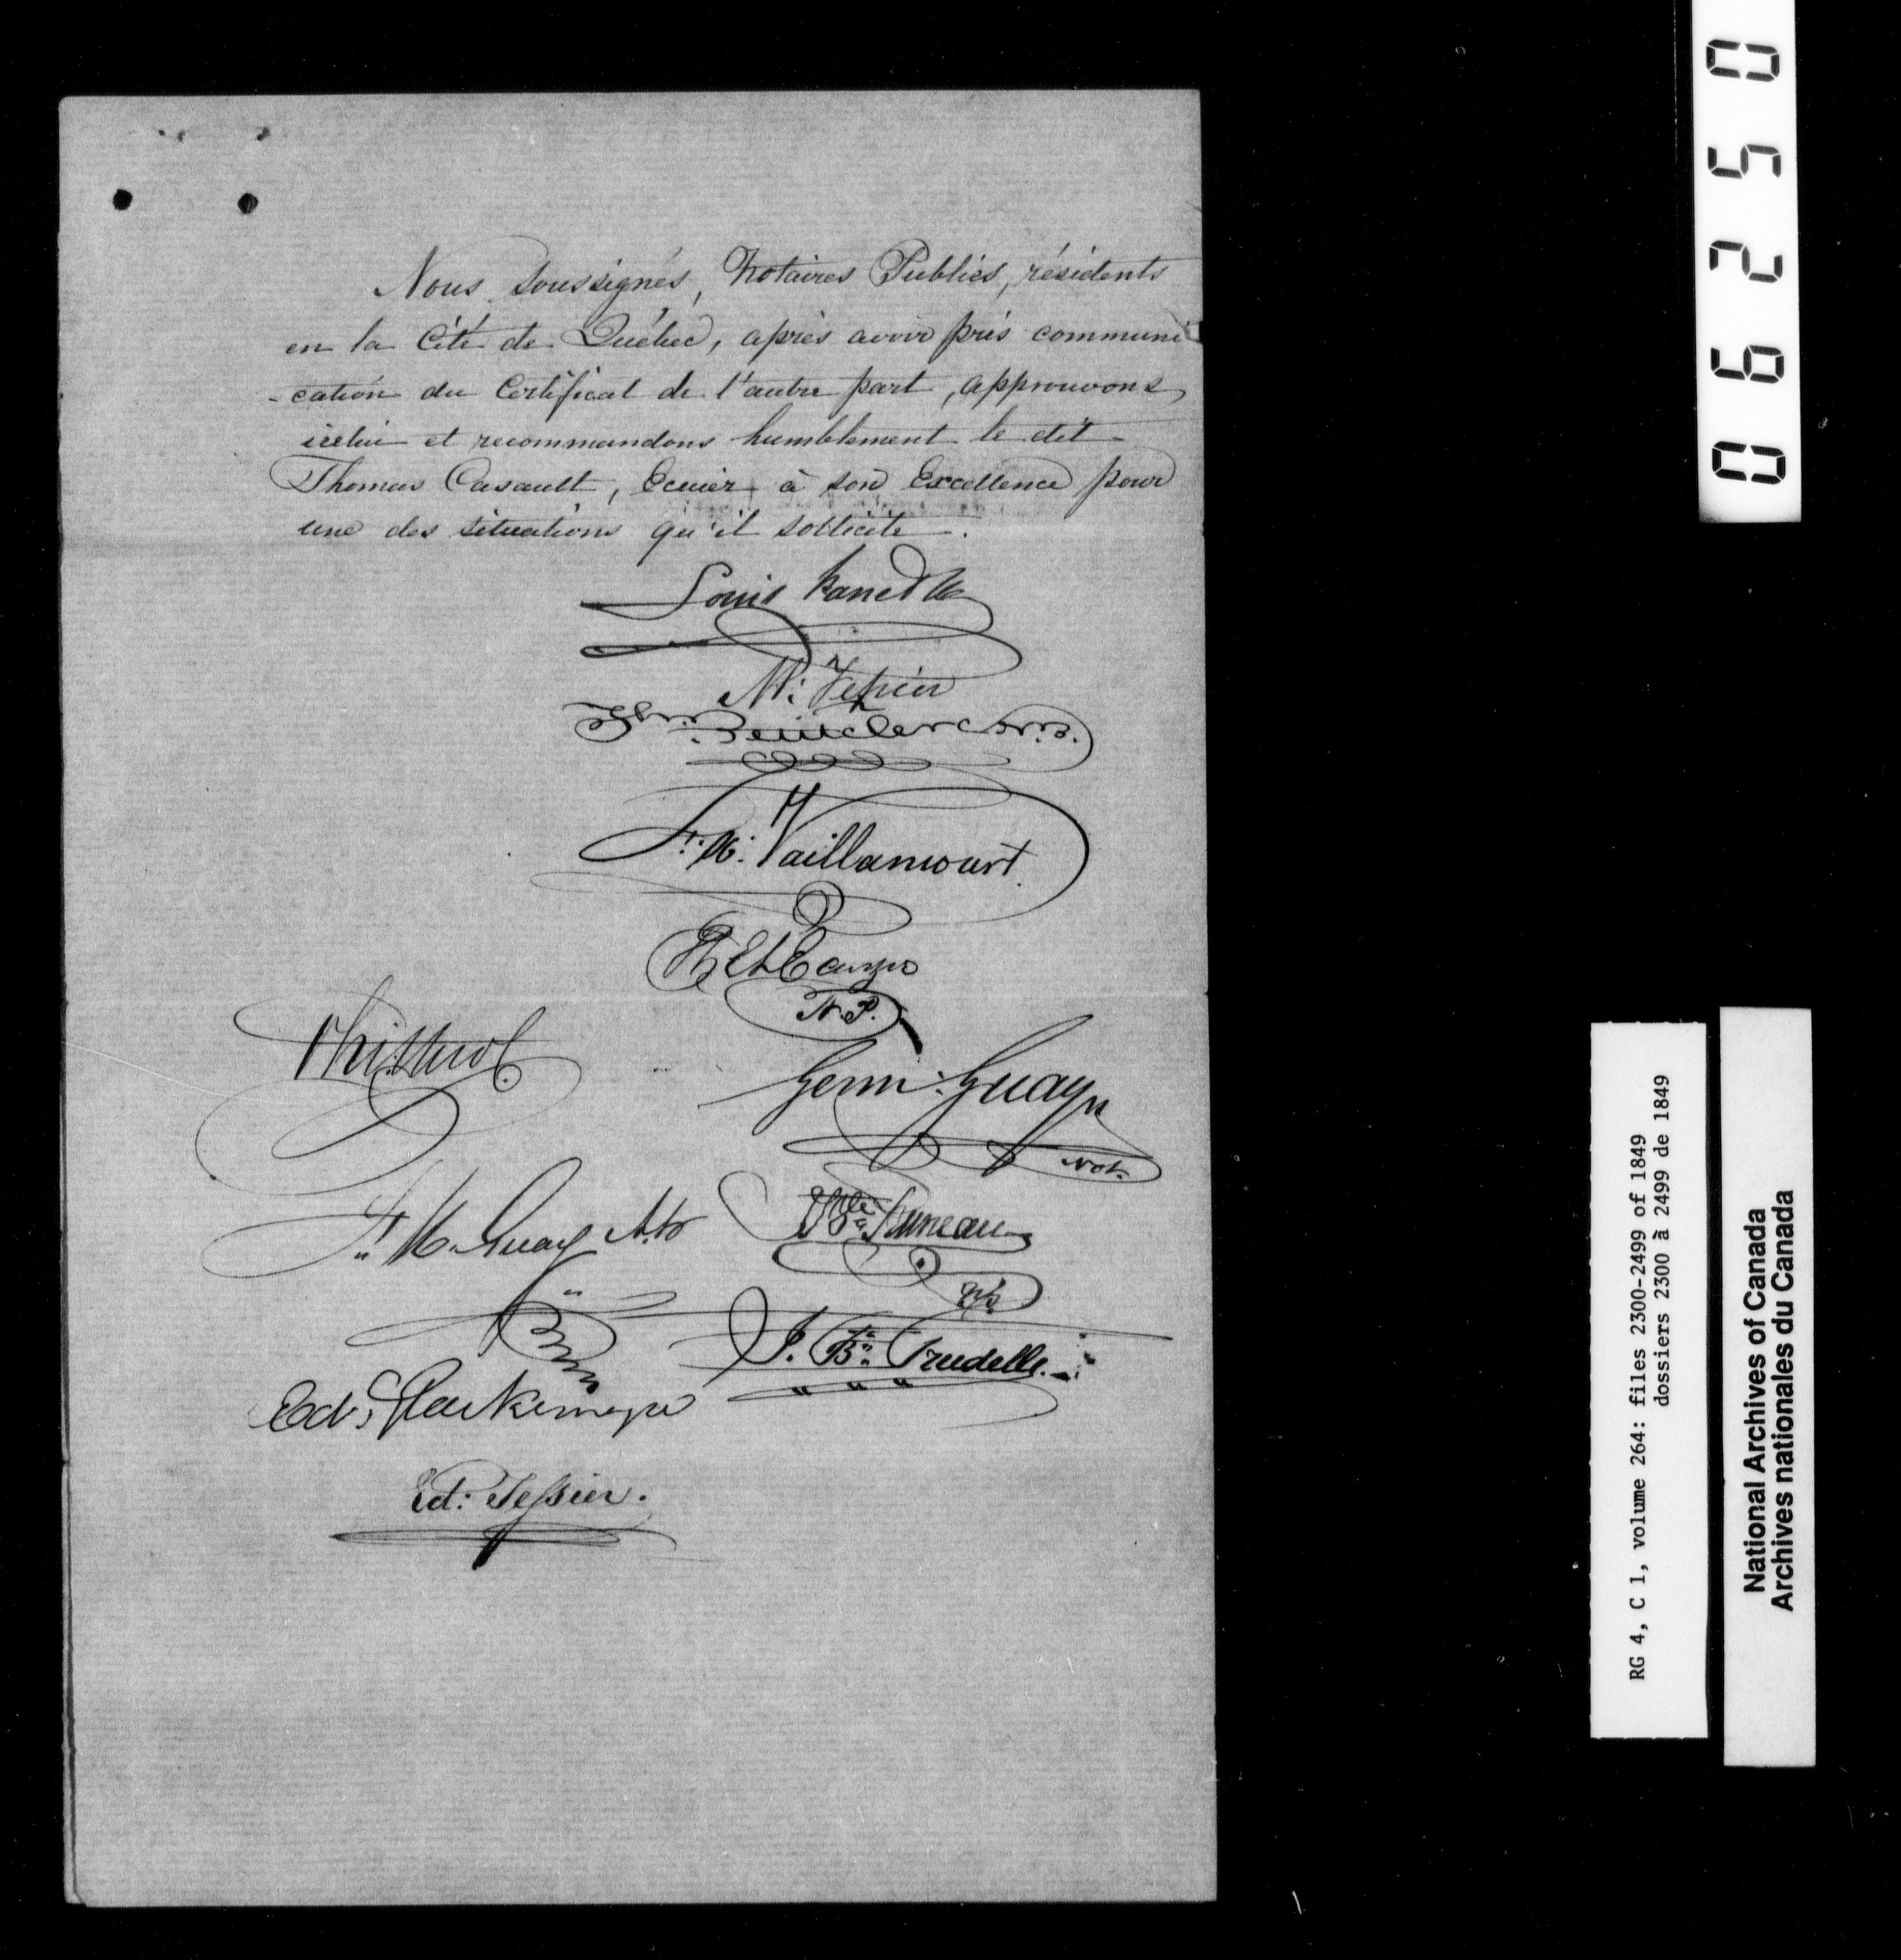 Nous soussignés, Notaires Publics, résidents
en la Cité de Québec, après avoir pris communi
-cation du Certificat de l'autre part, approuvons
icelui et recommandons humblement le dit
Thomas Casault, Ecuier à son Excellence pour
une des situations qu'il sollicite.
Louis Panet
M: Tessier
Petitclerc N.P.
F. X. Vaillancourt
N.P.
Germ: Guay
Not.
Huneau
J. Bte Trudelle
Guay
Ed: Glackemeyer
Ed: Tessier.
06250
RG 4, C 1, volume 264: files 2300-2499 of 1849
dossiers 2300 à 2499 de 1849
National Archives of Canada
Archives nationales du Canada